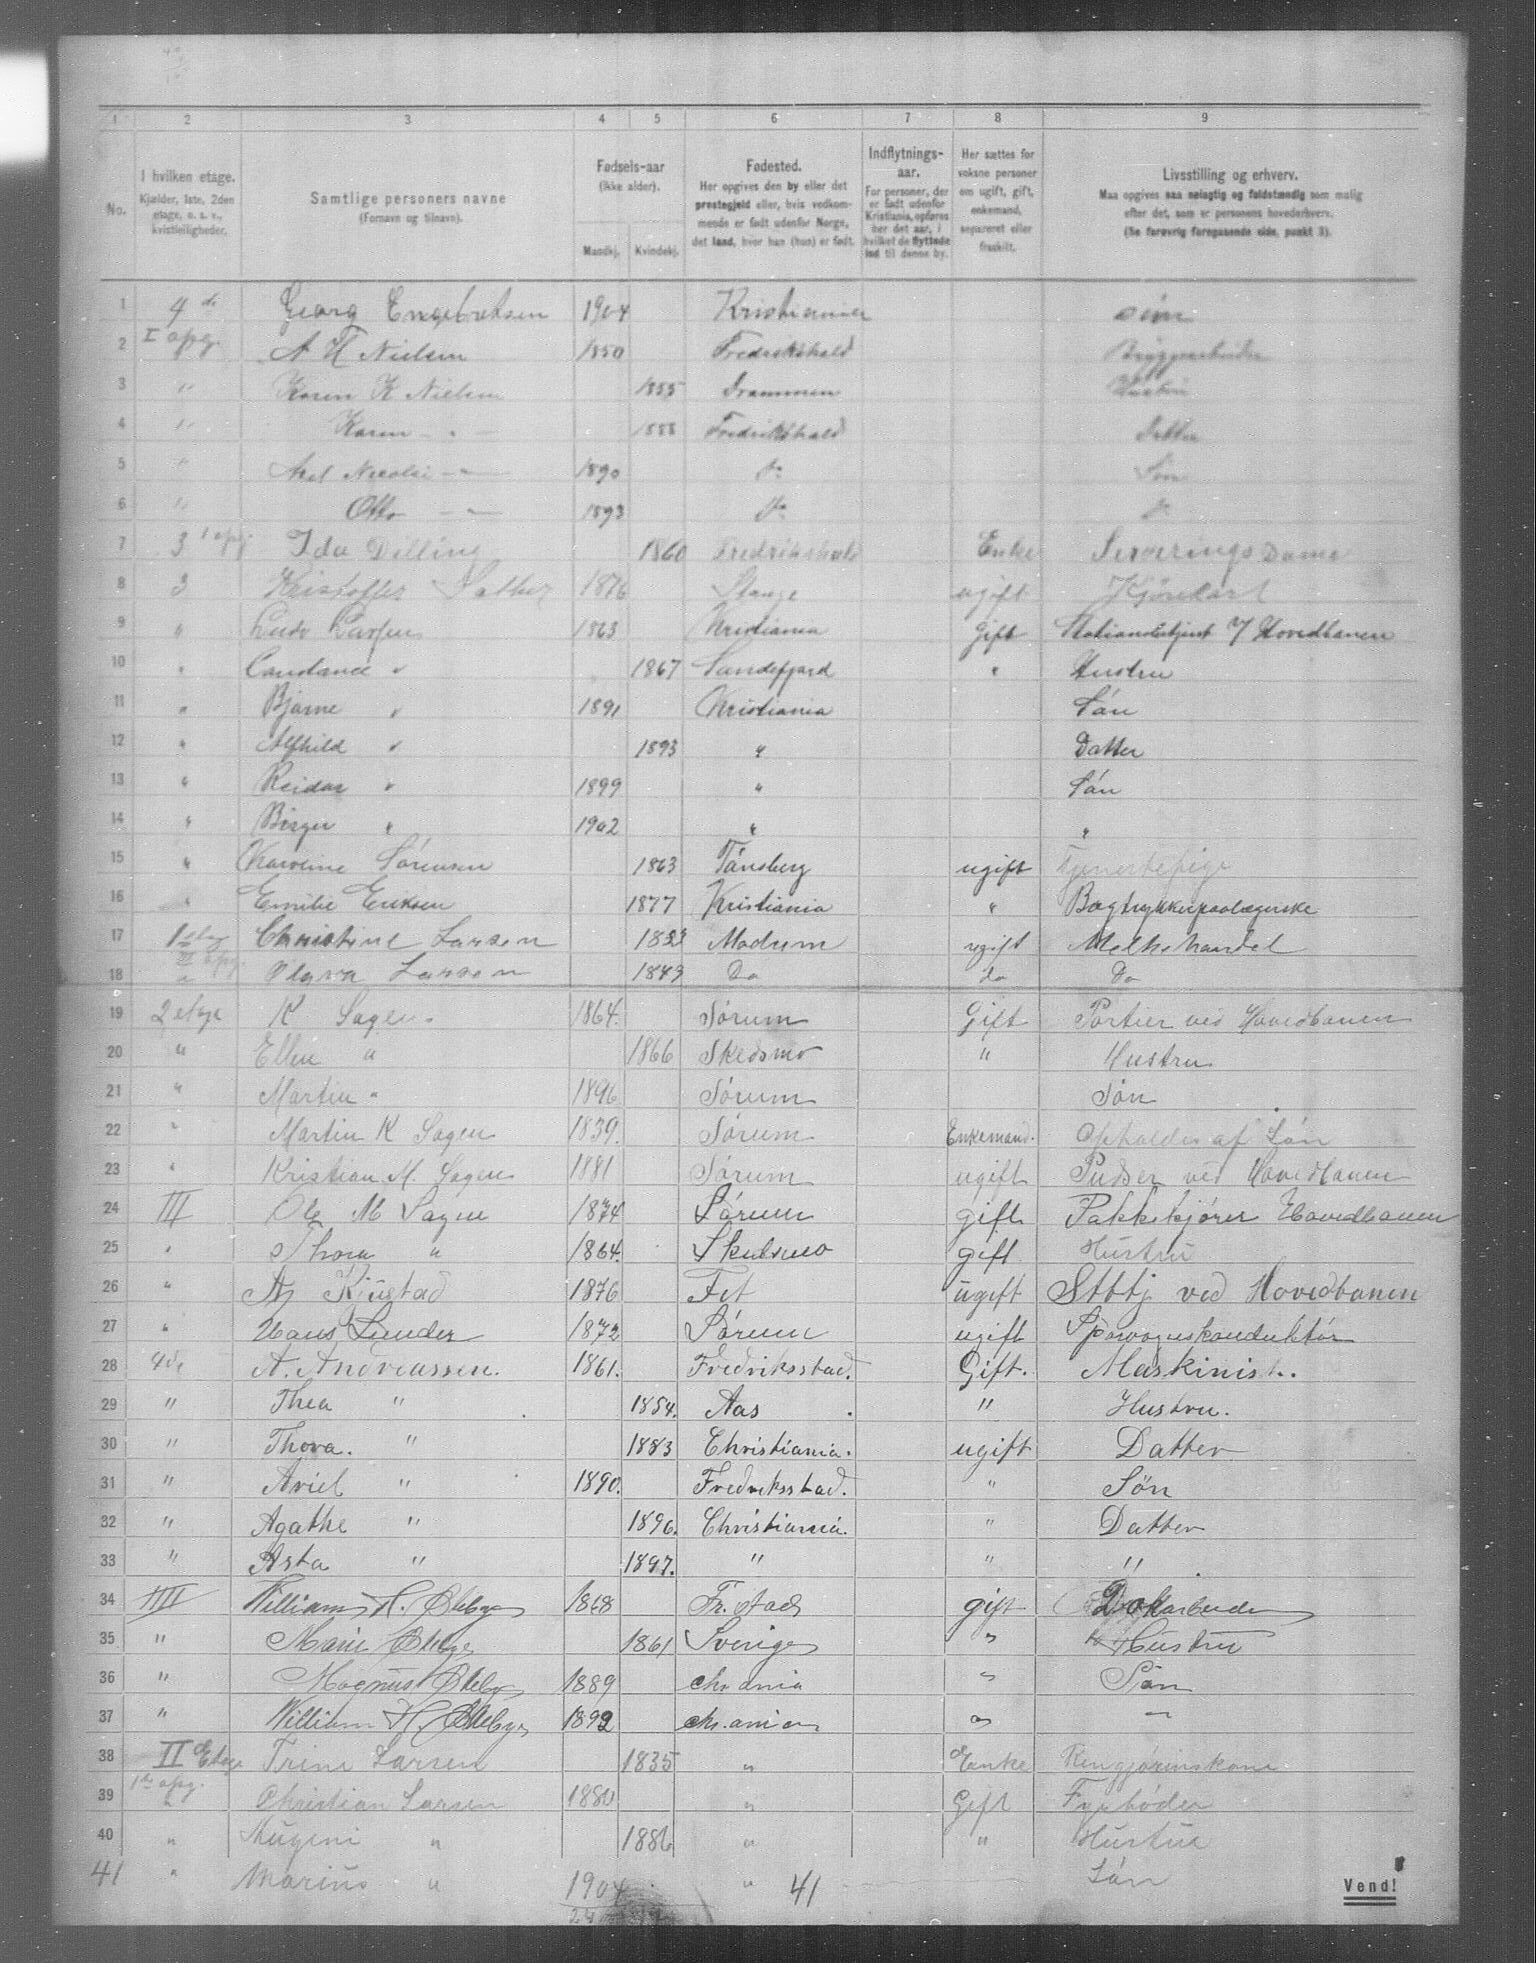 1 2 3 4 5 6 7 8 9
No.
I hvilken etage. Kjælder, 1ste, 2den etage, o. s. v., kvistleiligheder.
Samtlige personers navne (Fornavn og tilnavn).
Fødsels-aar (ikke alder). Mandkj. Kvindekj.
Fødested. Her opgives den by eller det prestegjeld eller, hvis vedkommende er født udenfor Norge, det land, hvor han (hun) er født.
Indflytnings-aar. For personer, der er født udenfor Kristiania, opføres her det aar, i hvilket de flyttede ind til denne by.
Her sættes for voksne personer om ugift, gift, enkemand, separeret eller fraskilt.
Livsstilling og erhverv. Maa opgives saa nøiagtig og fuldstændig som mulig efter det, som er personens hovederhverv. (Se forøvrig foregaaende side, punkt 3).
1 4de Georg Engebretsen 1904 Kristiania Søn
2 I opg. A H Nielsen 1850 Fredrikshald Bryggearbeider
3 " Karen K Nielsen 1855 Drammen Hustru
4 " Karen - " - 1888 Fredrikshald Datter
5 " Axel Nicolai - " - 1890 Do Søn
6 " Otto - " - 1893 Do Do
7 3 1 opg. Ida Dilling 1860 Fredrikshald Enke Serverings Dame
8 3 Kristoffer Sæther 1876 Stange ugift Kjørekarl
9 " Ludv Larsen 1863 Kristiania Gift Stationsbetjent v/ Hovedbanen
10 " Constance " 1867 Sandefjord " Hustru
11 " Bjarne " 1891 Kristiania Søn
12 " Alfhild " 1893 " Datter
13 " Reidar " 1899 " Søn
14 " Birger " 1902 " "
15 " Karoline Sørensen 1863 Tønsberg ugift Tjenestepige
16 " Emilie Eriksen 1877 Kristiania " Bogtrykkerpaalægerske
17 1ste etag III opg. Christine Larsen 1833 Modum ugift Melkehandel
18 " Olava Larsen 1843 Do do Do
19 2 etage K Sagen. 1864. Sørum Gift Portier ved Hovedbanen
20 " Ellen " 1866 Skedsmo " Hustru
21 " Martin " 1896 Sørum Søn
22 " Martin K Sagen 1839. Sørum Enkemand. Opholdes af Søn
23 " Kristian M. Sagen 1881 Sørum ugift Pudser ved Hovedbanen
24 III Ole M Sagen 1874 Sørum gift Pakkekjører Hovedbanen
25 " Thora " 1864. Skedsmo gift Hustru
26 " A. 1876 Fet ugift Stbtj ved Hovedbanen
27 " Hans Lunder 1872 Sørum ugift Sporvognskonduktør
28 4de A. Andreassen. 1861. Fredriksstad. Gift. Maskinist.
29 " Thea " 1854. Aas " Hustru.
30 " Thora. " 1883 Christiania. ugift Datter
31 " Ariel " 1890. Fredriksstad. " Søn
32 " Agathe " 1896. Christiania. " Datter
33 " Asta " 1897. " " "
34 IIII William H. Økeby 1868 Fr. stad gift Dokarbeider
35 " Marie Økeby 1861 Sverige " Hustru
36 " Magnus Økeby 1889 chr ania " Søn
37 " William H. Økeby 1892 chr. ania " "
38 II Etage Trine Larsen 1835 " Enke Rengjøringskone
39 1ste opg. " Christian Larsen 1880 " Gift Fyrbøder
40 " " 1886 " " Hustru
41 " Marius " 1904 " Søn
41
Vend!